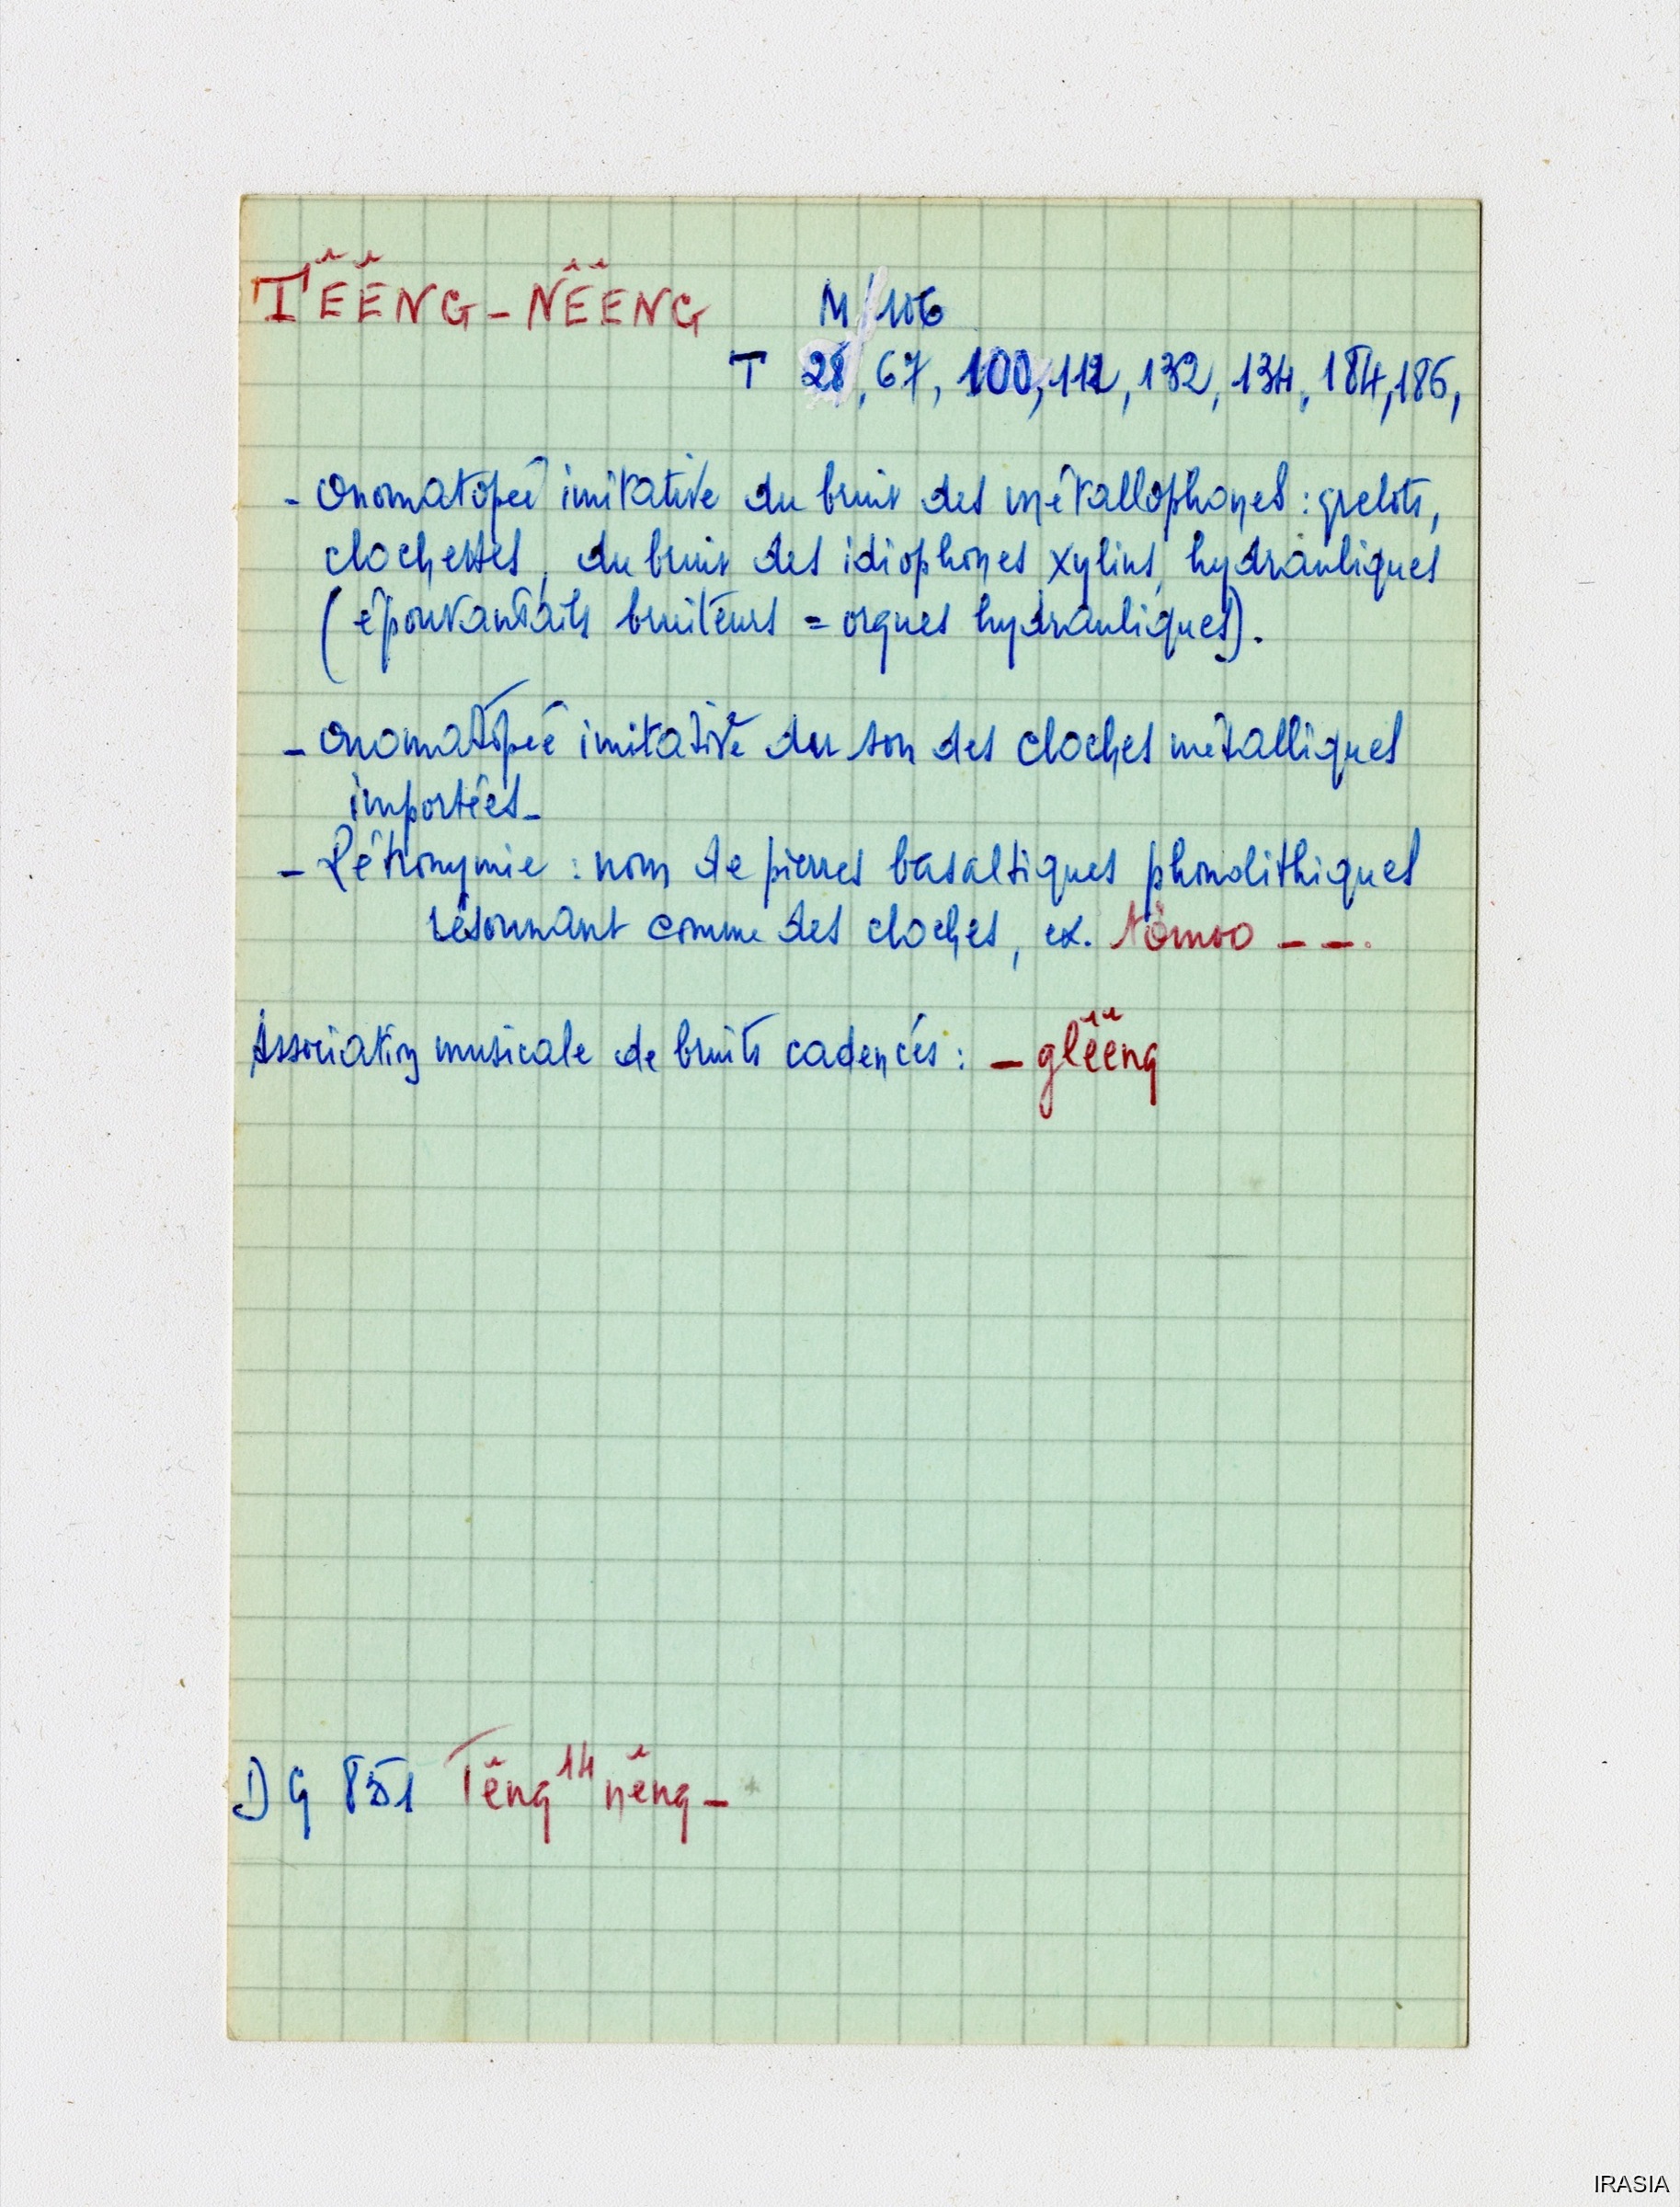 TÊÊNG-NÊÊNG M/106
T 28, 67, 100, 112, 132, 134, 184, 186,
- Onomatopée imitative du bruit des métallophones : grelots,
clochettes, du bruit des idiophones xylins, hydrauliques
(épouvantails bruiteurs = orgues hydrauliques).
- onomatopée imitative du son des cloches métalliques
importées -
- Pétronymie : nom de pierres basaltiques phonolithiques
résonnant comme des cloches, ex. Nömoo - -.
Association musicale de bruits cadencés : - glêêng
DG 851 Têng 14 nêng -
IRASIA